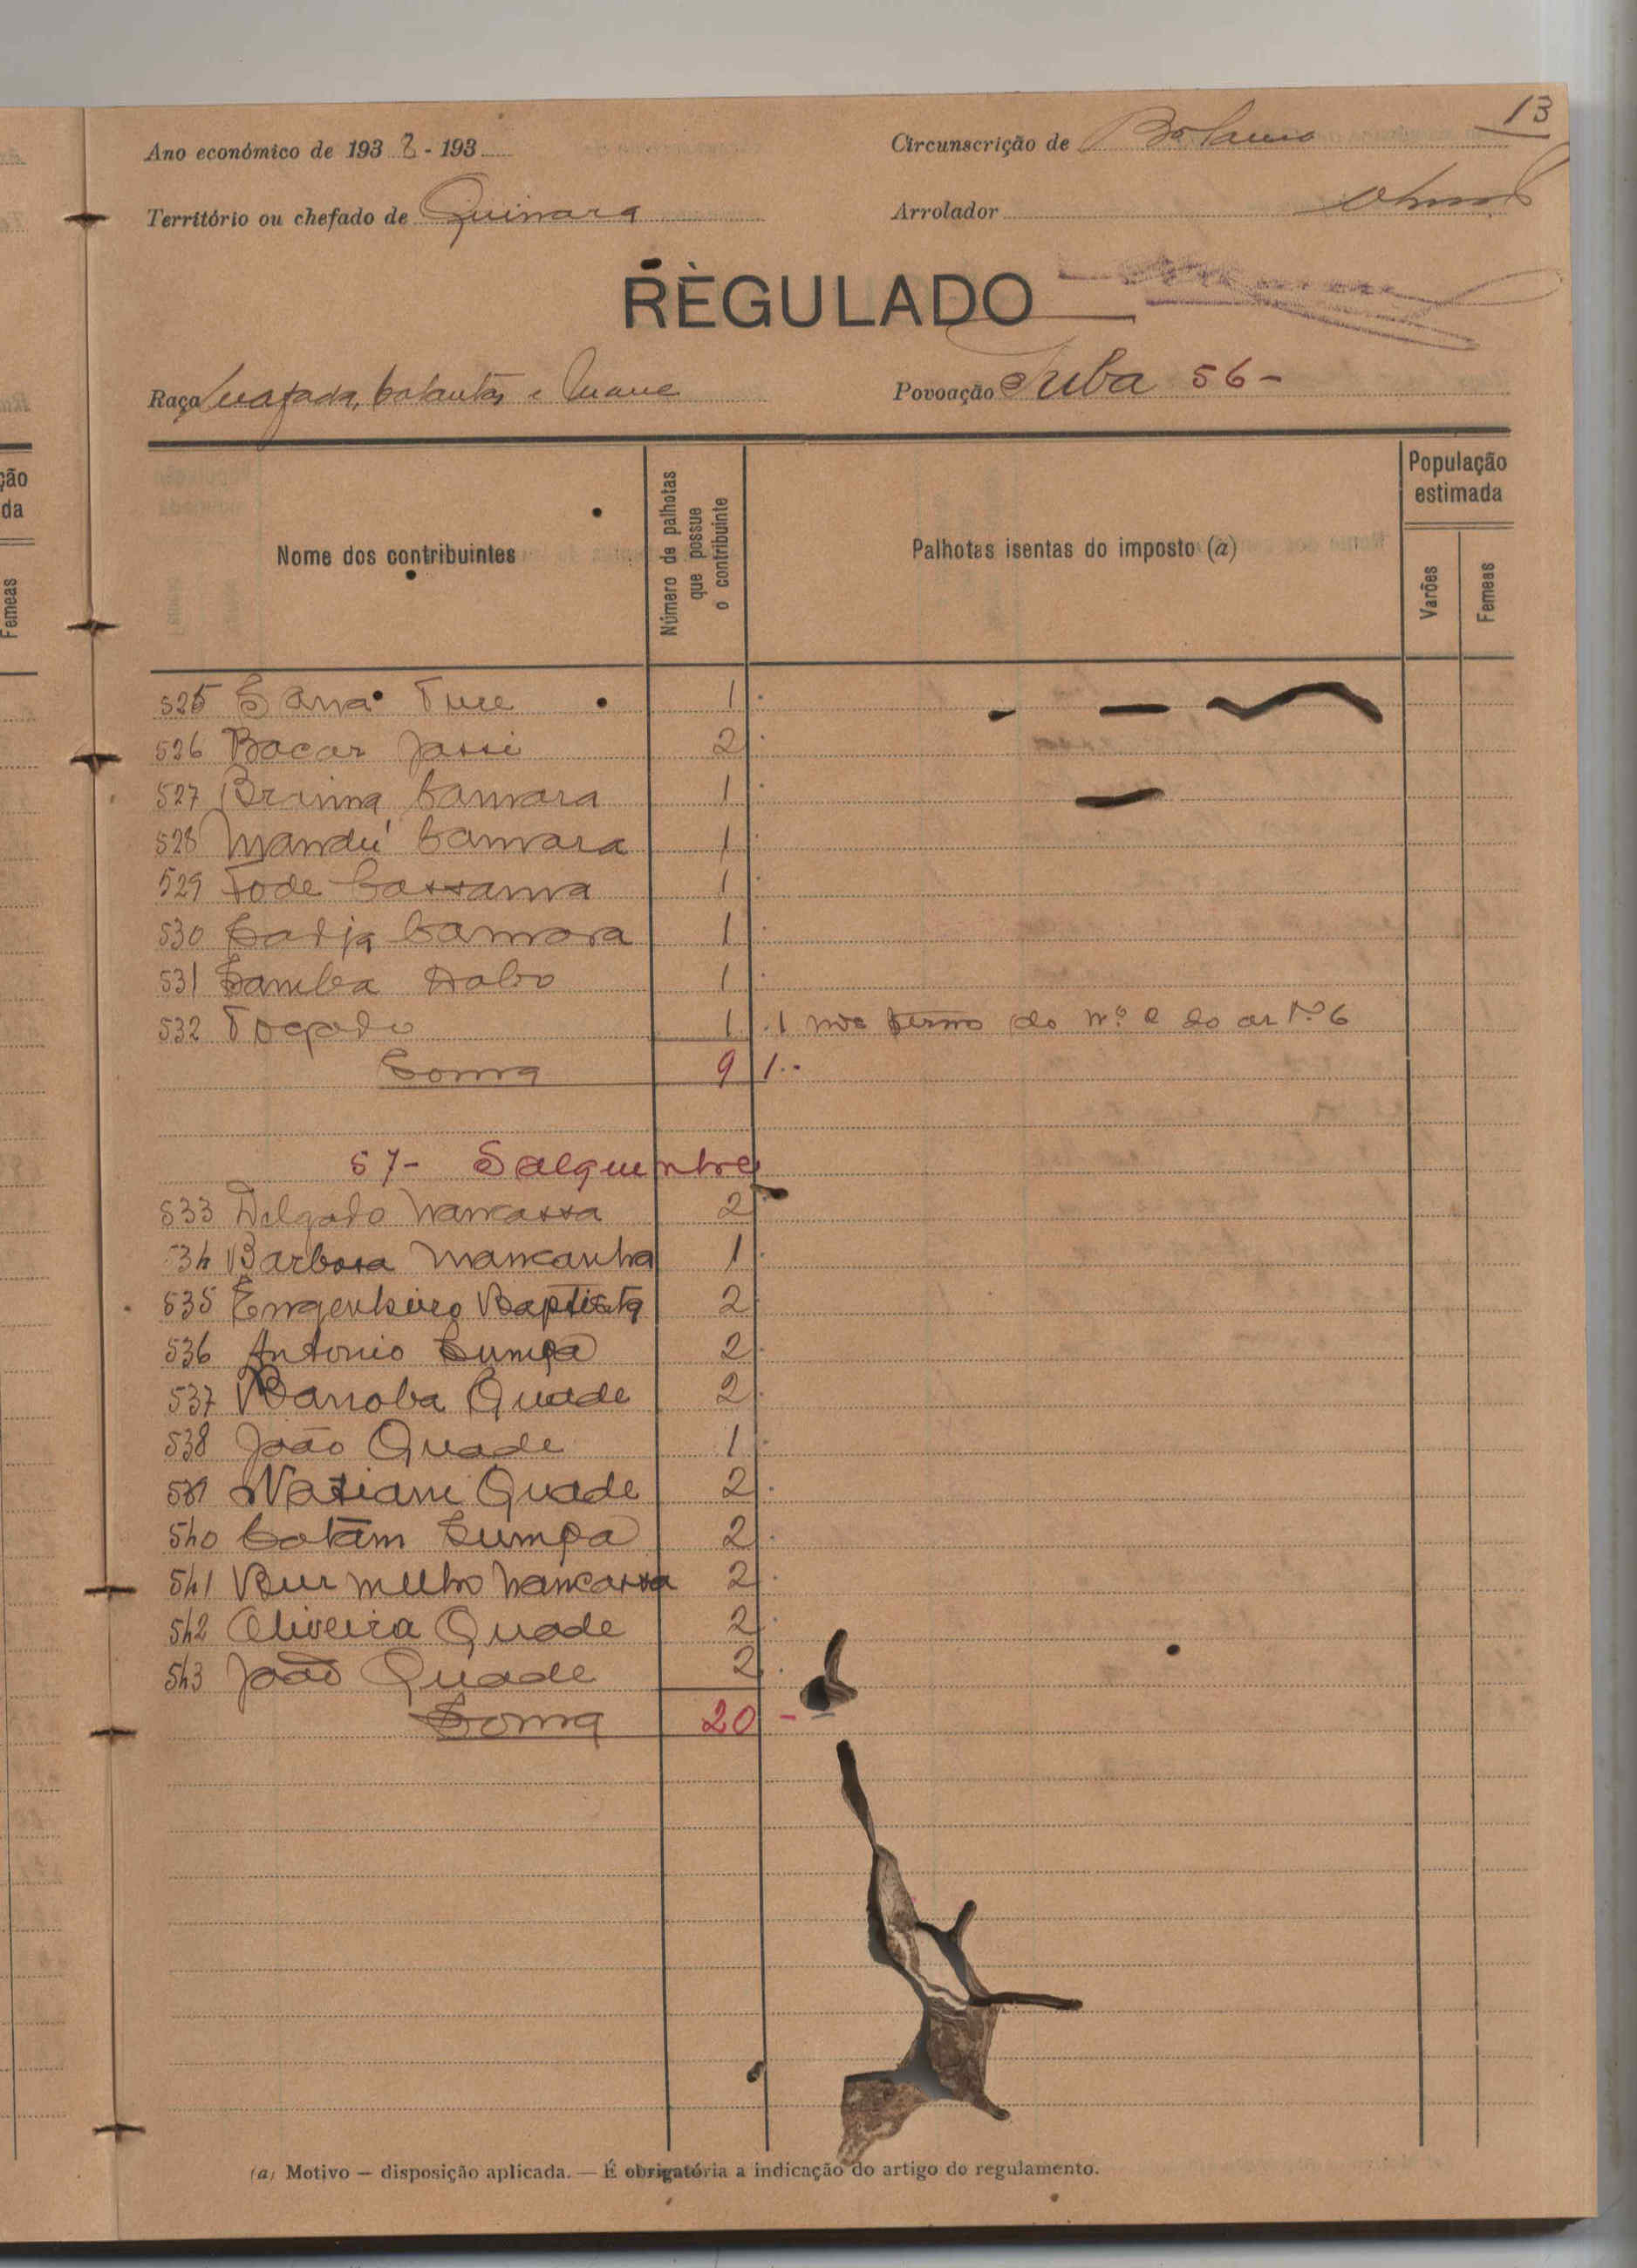 13
Ano económico de 193 2 - 193
Circunscrição de Bolama
Território ou chefado de Quinara
Arrolador
REGULADO
Raça balantas e
Povoação Juba 56-
Nome dos contribuintes
Número de palhotas que possue o contribuinte
Palhotas isentas do imposto (a)
População estimada
Varões
Femeas
525 Sana Ture 1
526 Bacar Jassi 2
527 Braima Camara 1
528 Mandú Camara 1
529 Fode Cassama 1
530 Sadja Camara 1
531 Samba Dabo 1
532 Togado 1 1 nos termo do nº 2 do artº 6
Soma 9 1
57- Salquenhe
533 Delgado Nancassa 2
534 Barbosa Mancanha 1
535 Engenheiro Baptista 2
536 Antonio Sumpa 2
537 Banoba Quade 2
538 João Quade 1
539 Quade 2
540 Cotam Sumpa 2
541 Burmelho Nancassa 2
542 Oliveira Quade 2
543 João Quade 2
Soma 20 -
(a) Motivo — disposição aplicada. — É obrigatória a indicação do artigo do regulamento.
ção
da
Femeas